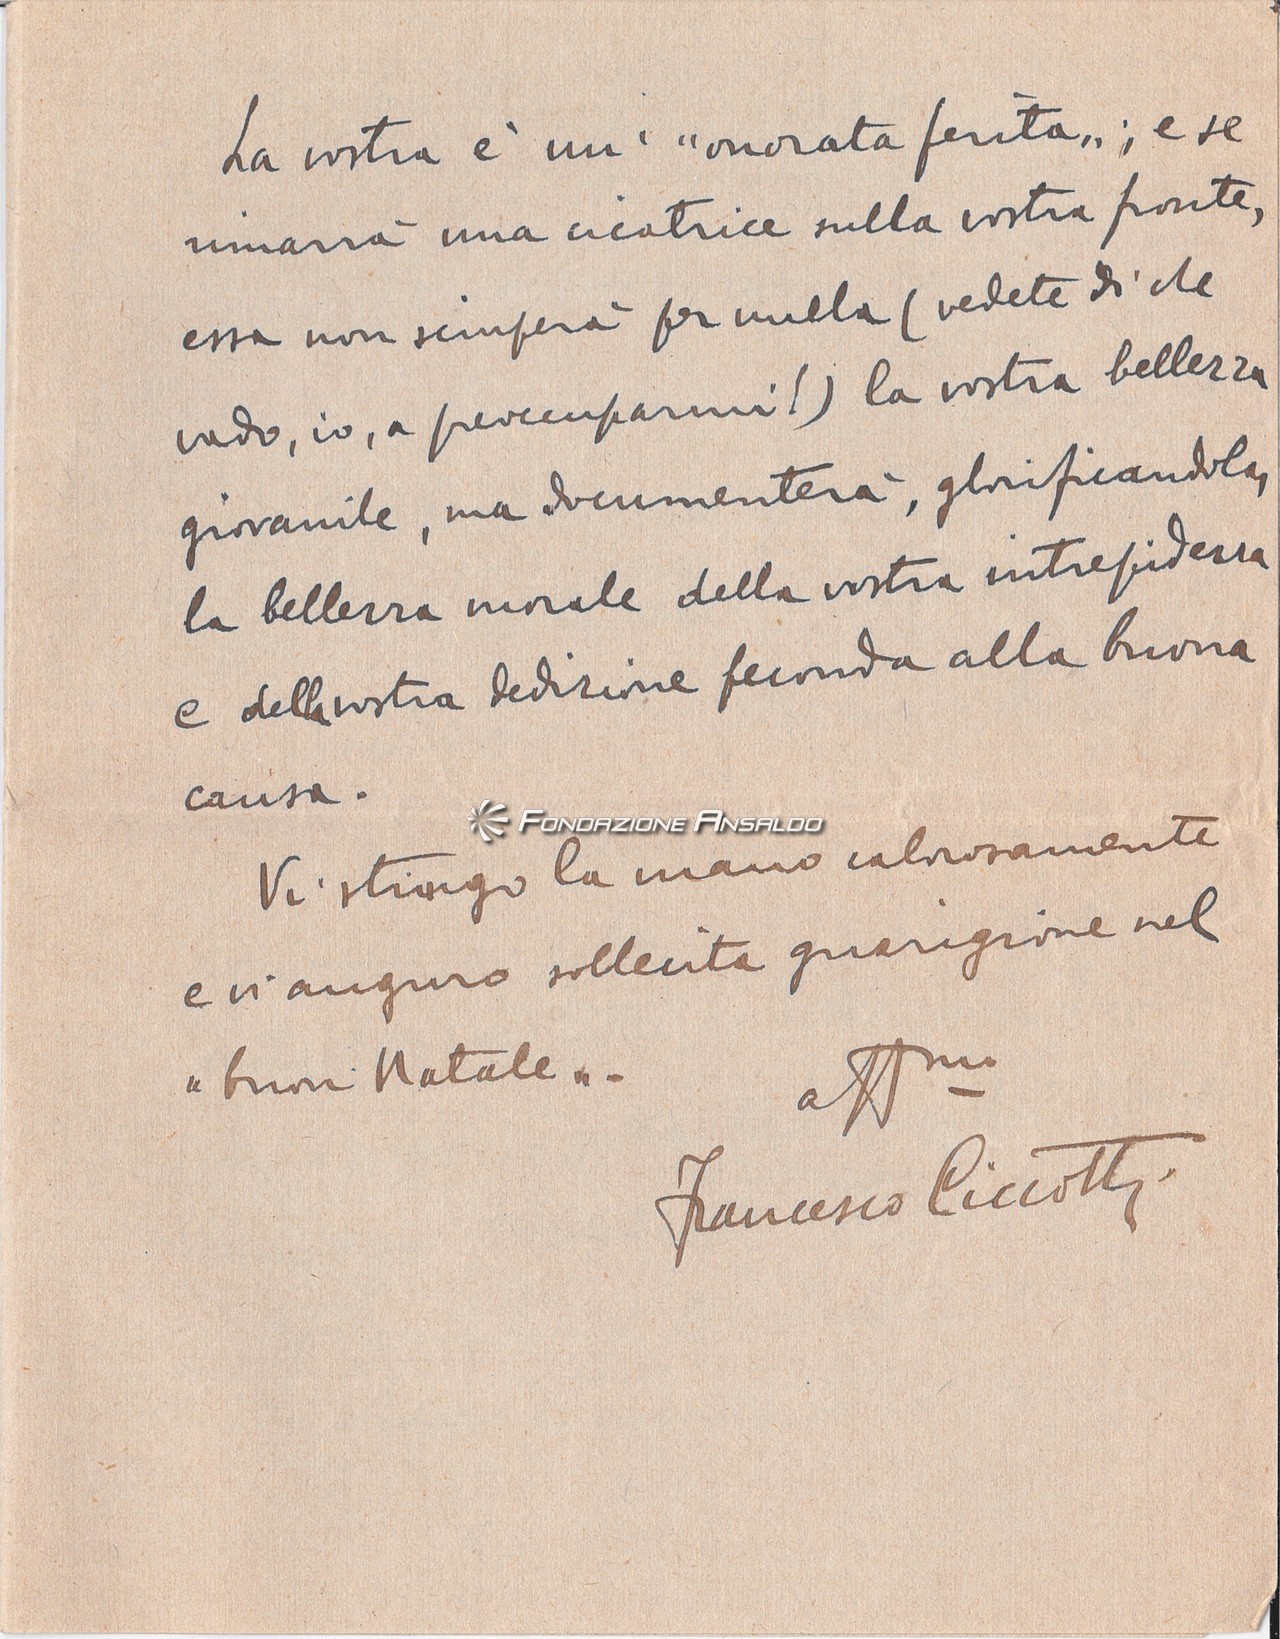 La vostra è un' "onorata ferita„; e se
rimarrà una cicatrice sulla vostra fronte,
essa non sciuperà per nulla (vedete di che
vado, io, a preoccuparmi!) la vostra bellezza
giovanile, ma documenterà, glorificandola,
la bellezza morale della vostra intrepidezza
e della vostra dedizione feconda alla buona
causa.
FONDAZIONE ANSALDO
Vi stringo la mano calorosamente
e vi auguro sollecita guarigione nel
"buon Natale".
affmo
Francesco Ciccotti.